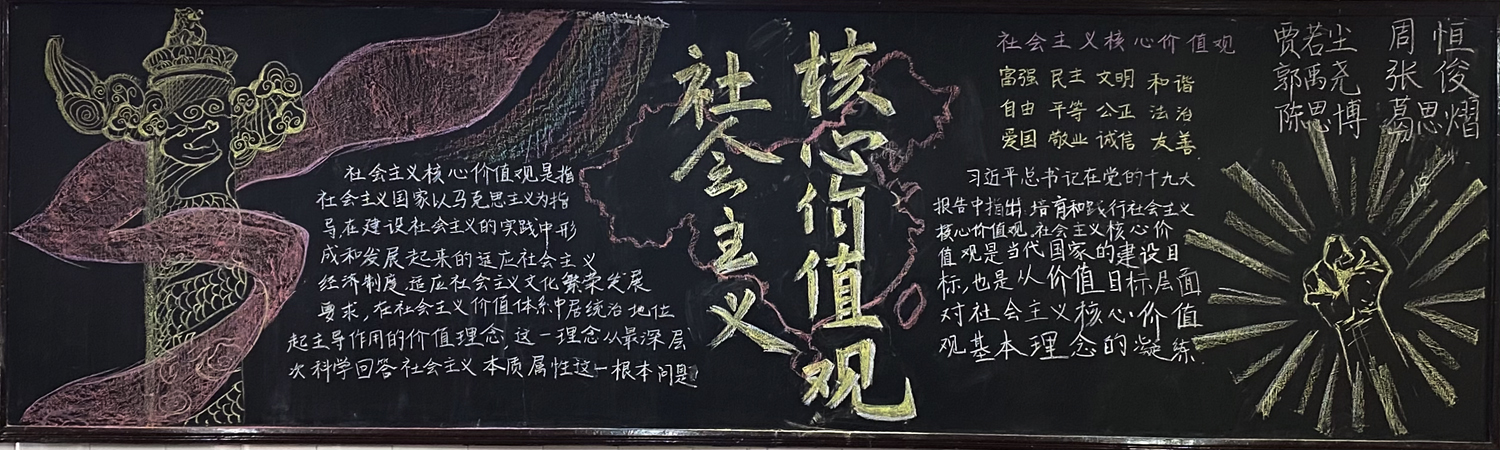 社会主义
核心价值观
社会主义核心价值观是指
社会主义国家以马克思主义为指
导在建设社会主义的实践中形
成和发展起来的适应社会主义
经济制度，适应社会主义文化繁荣发展
要求，在社会主义价值体系中居统治地位
起主导作用的价值理念，这一理念从最深层
次科学回答社会主义本质属性这一根本问题
社会主义核心价值观
富强 民主 文明 和谐
自由 平等 公正 法治
爱国 敬业 诚信 友善
习近平总书记在党的十九大
报告中指出，培育和践行社会主义
核心价值观，社会主义核心价
值观是当代国家的建设目
标，也是从价值目标层面
对社会主义核心价值
观基本理念的凝练
贾若尘 周恒
郭禹尧 张俊
陈思博 葛思熠